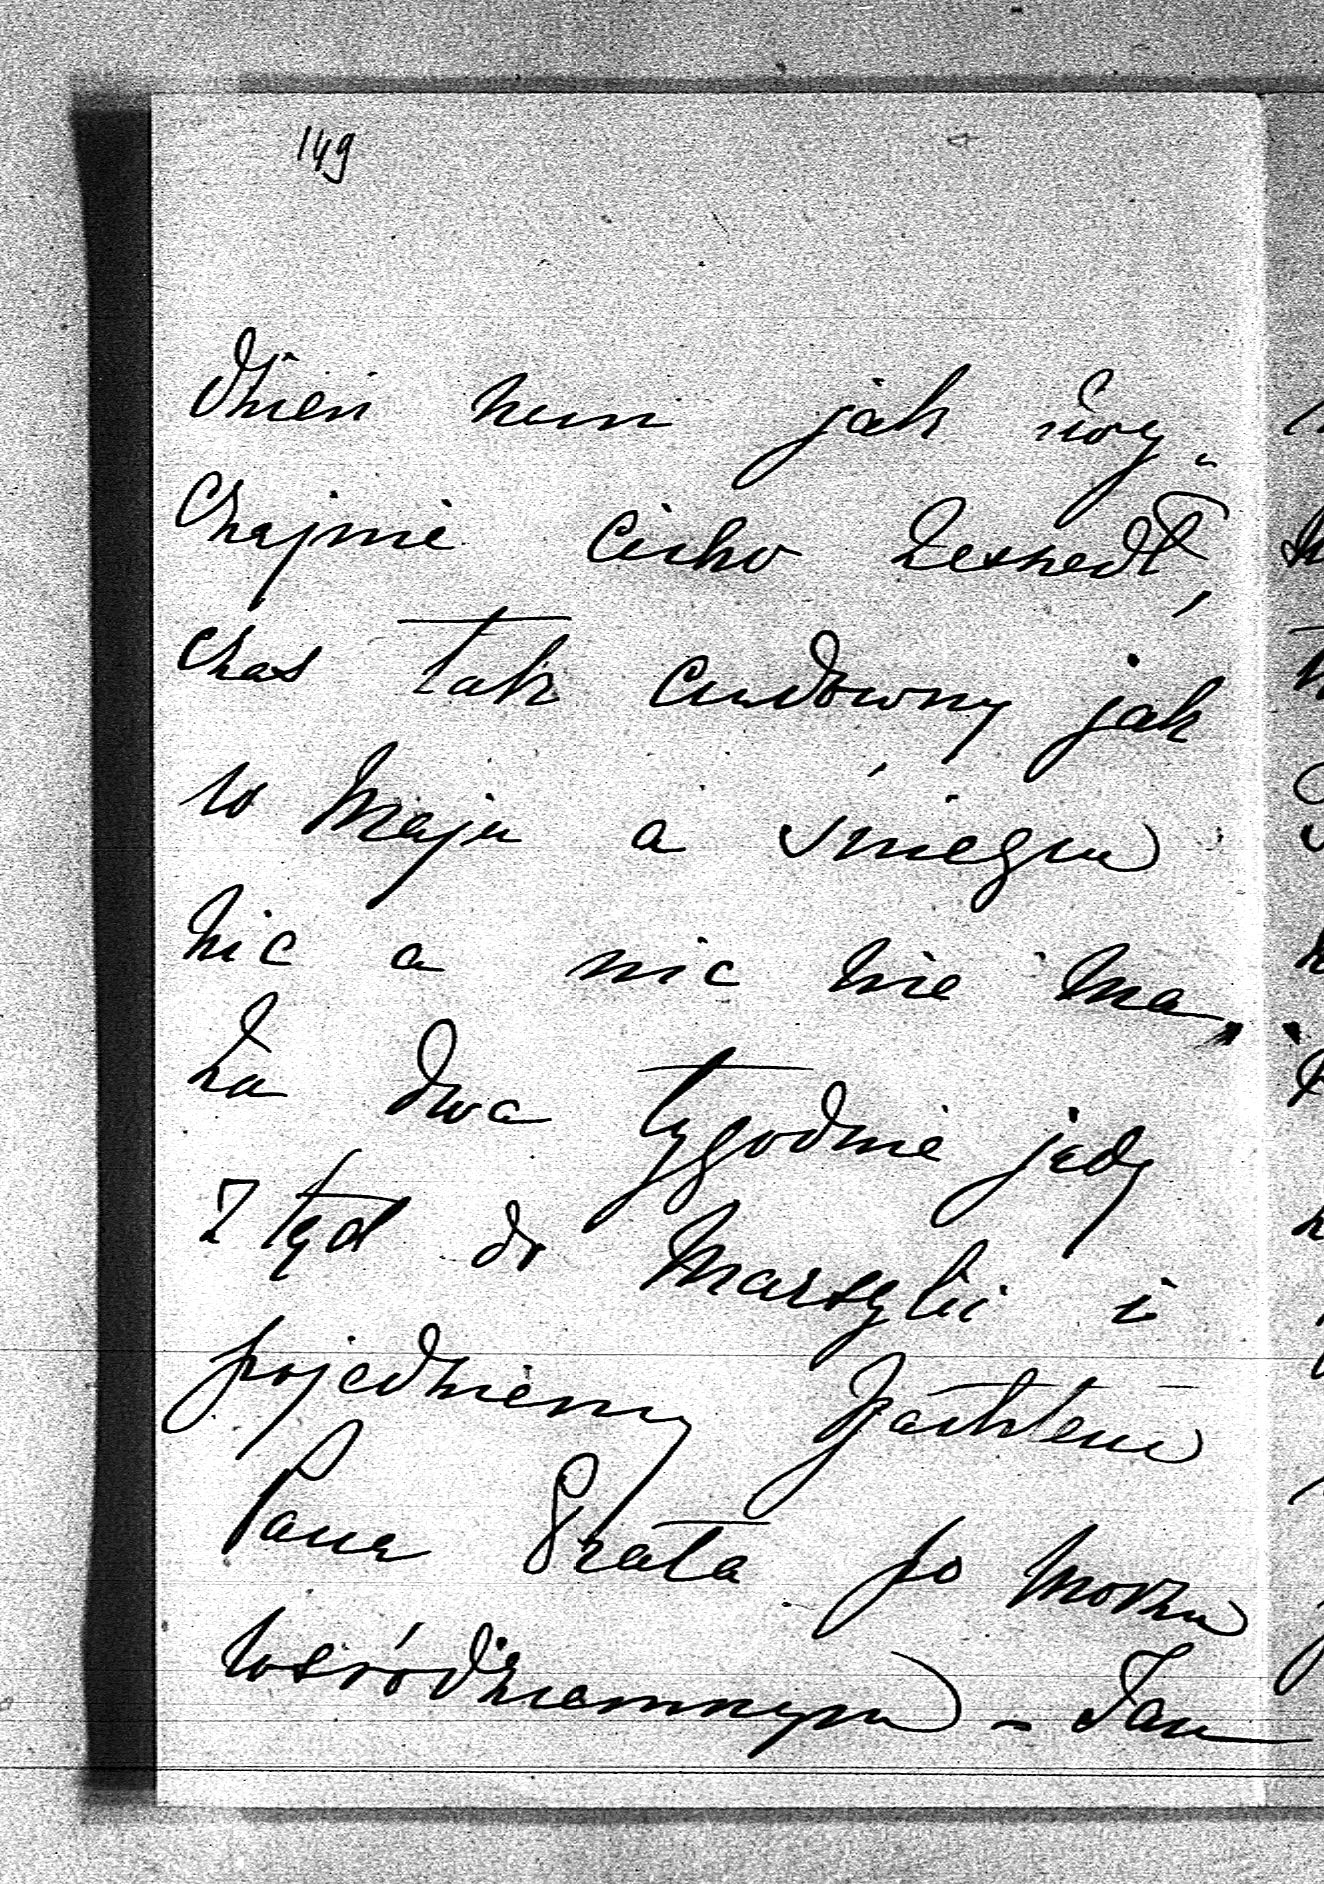 149
dzień nam jak zwy-
czajnie cicho zeszedł,
czas tak cudowny jak
w Maju a śniegu
nic a nic nie ma.
Za dwa tygodnie jadę
ztąd do Marsylii i
pojedziemy Jachtem
Pana po morzu
wśródziemnym – Jan